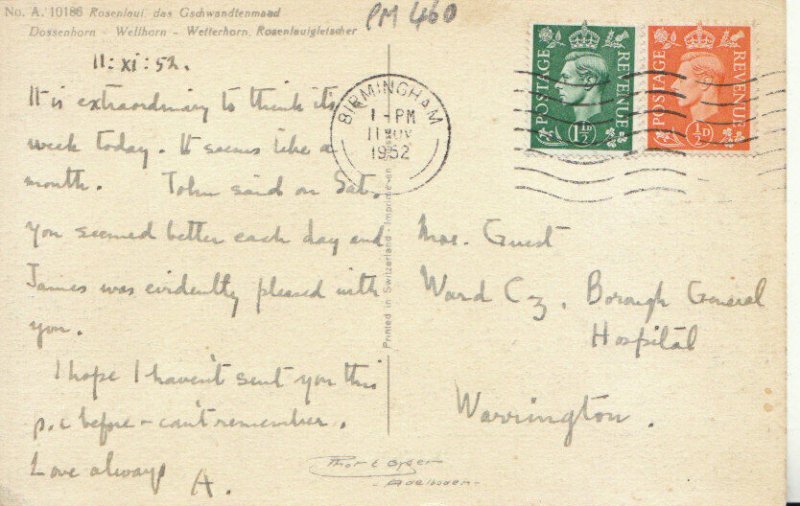 No. A. 10186 Rosenlaui, das Gschwandtenmaad
Dossenhorn - Wellhorn - Wetterhorn, Rosenlauigletscher
PM 460
11:xi:52.
It is extraordinary to think its
week today. It seems like a
month. John said on Sat.
you seemed better each day and
James was evidently pleased with
you.
I hope I haven't sent you this
p.c before - can't remember.
Love always
A.
BIRMINGHAM
1-PM
11 NOV
1952
POSTAGE REVENUE
1½D
POSTAGE REVENUE
½D
Printed in Switzerland - Imprimé en
Mrs. Guest
Ward C3. Borough General
Hospital
Warrington.
Phot E Gyger
- Adelboden -